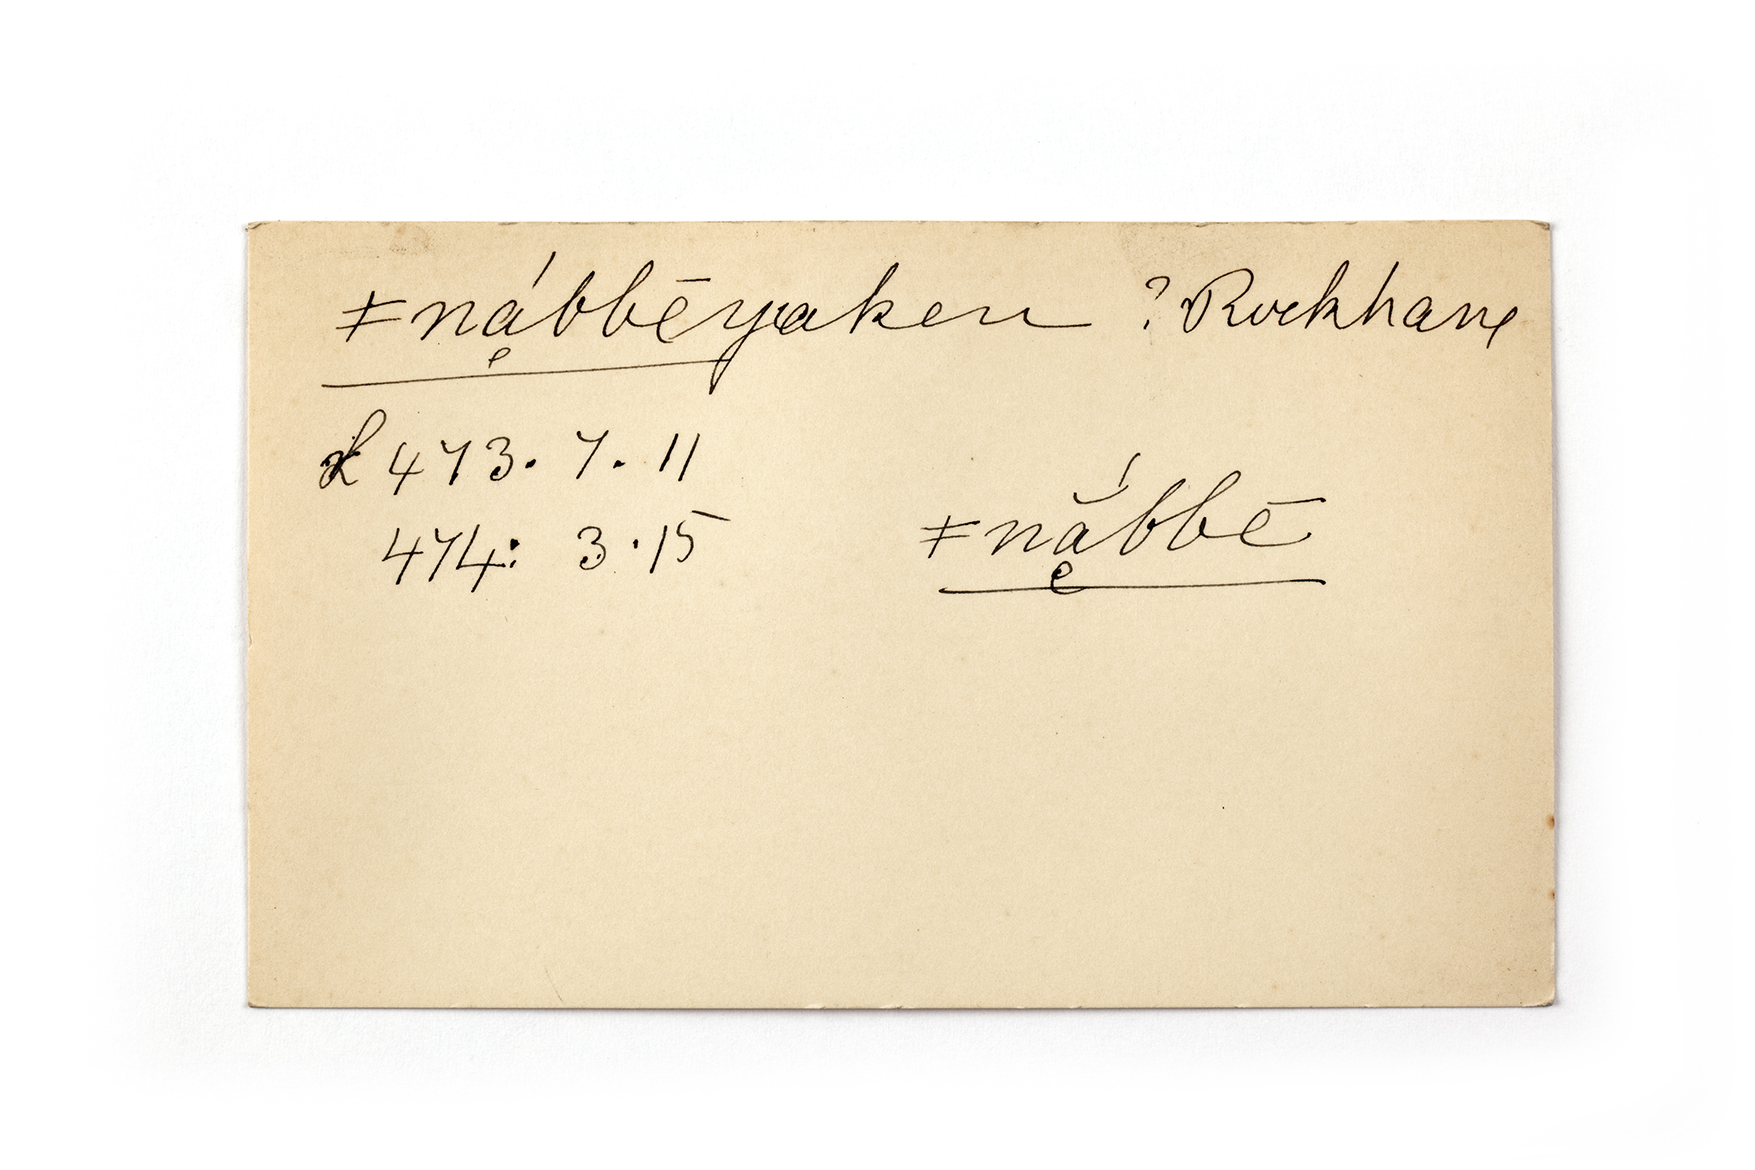 ǂná̱bbēyaken ? Rockhare
L 473. 7. 11
474: 3. 15
ǂnắ̱bbē